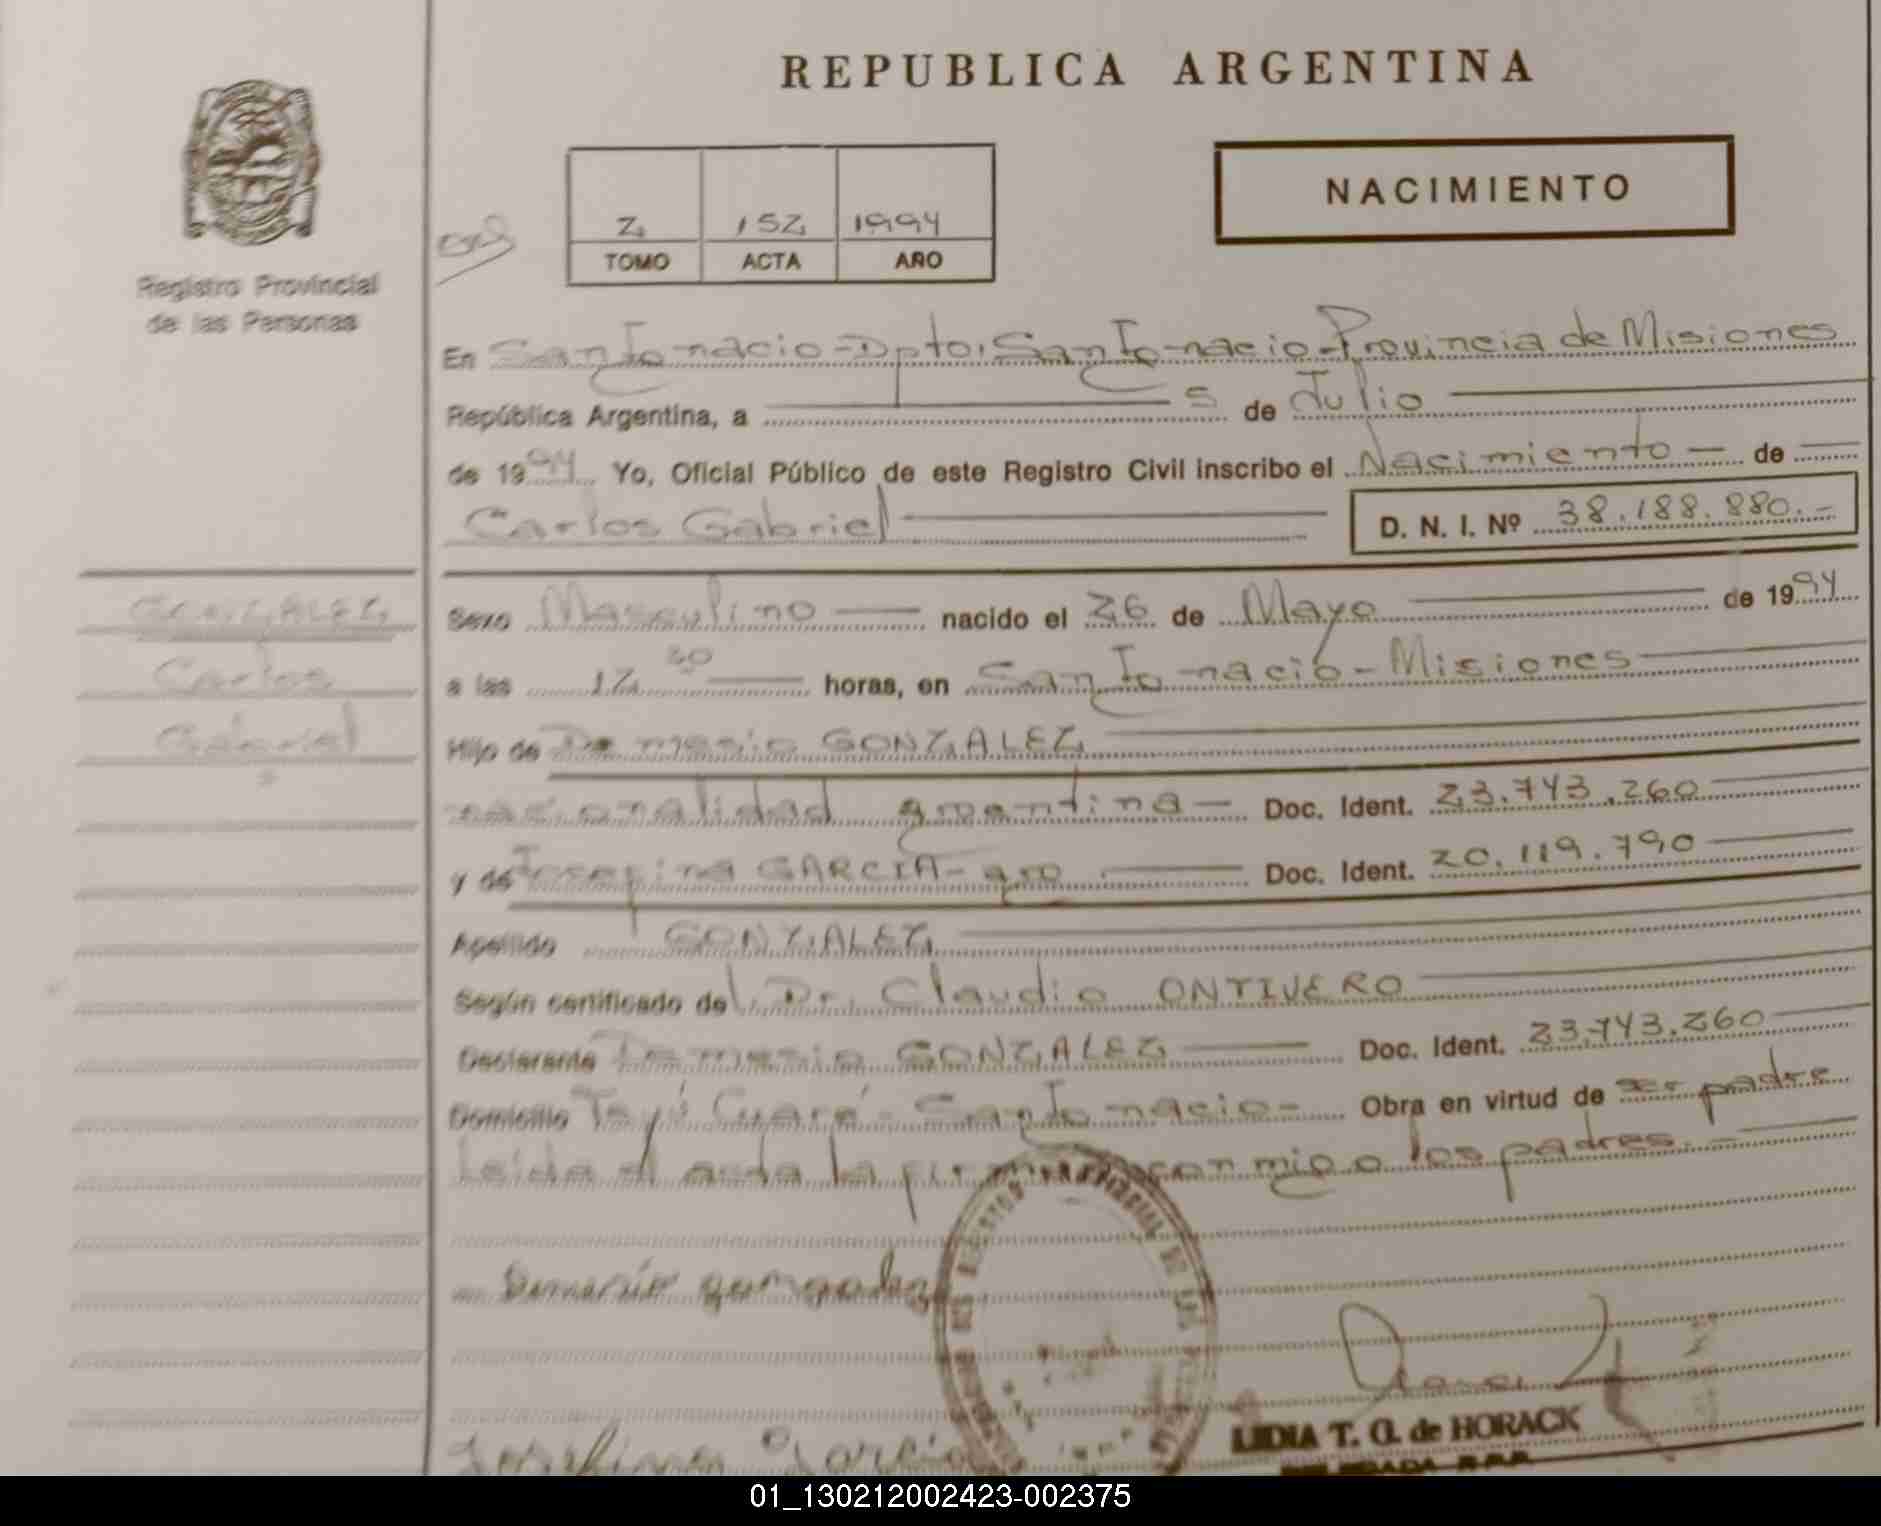 REPUBLICA ARGENTINA
NACIMIENTO
2 152 1994
TOMO ACTA AÑO
Registro Provincial
de las Personas
En San Ignacio - Dpto. San Ignacio - Provincia de Misiones
República Argentina, a 5 de Julio
de 1994 Yo, Oficial Público de este Registro Civil inscribo el Nacimiento - de
Carlos Gabriel D. N. I. Nº 38.188.880.-
GONZALEZ
Carlos
Gabriel
Sexo Masculino nacido el 26 de Mayo de 1994
a las 12 30 horas, en San Ignacio - Misiones
Hijo de Demesio GONZALEZ
nacionalidad argentina - Doc. Ident. 23.743.260
y de Josefina GARCIA - arg Doc. Ident. 20.119.790
Apellido GONZALEZ
Según certificado del Dr. Claudio ONTIVERO
Declarante Demesio GONZALEZ Doc. Ident. 23.743.260
Domicilio Teyú Cuaré - San Ignacio - Obra en virtud de ser padre
Leída el acta la firman conmigo los padres. -
LIDIA T. G. de HORACK
DELEGADA R.P.P.
01_130212002423-002375